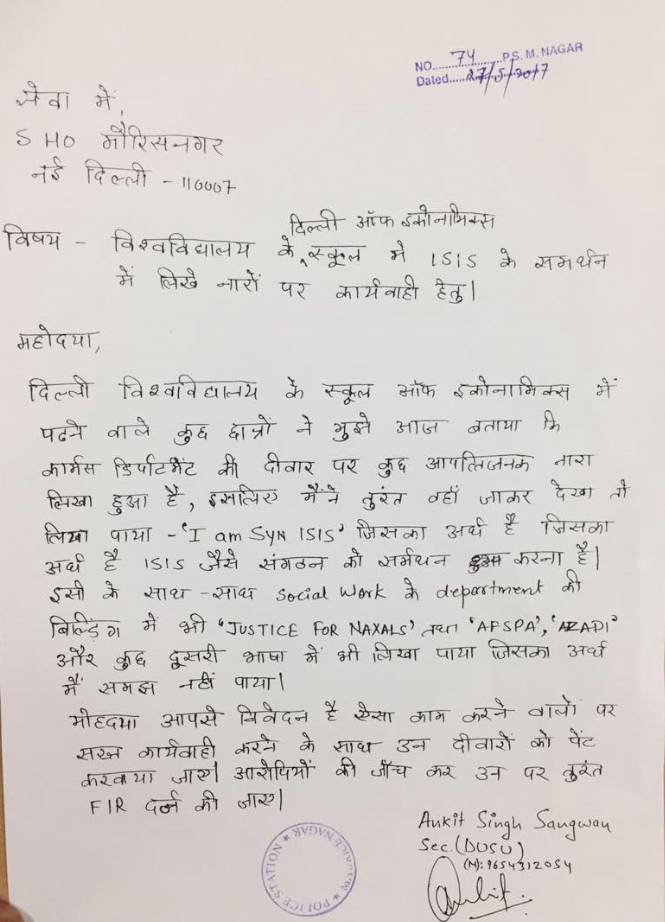 NO. 74 P.S. M. NAGAR
Dated 27/5/2017
सेवा में,
SHO मौरिसनगर
नई दिल्ली - 110007
दिल्ली ऑफ इकोनामिक्स
विषय - विश्वविद्यालय के स्कूल मे ISIS के समर्थन
में लिखे नारों पर कार्यवाही हेतु।
महोदया,
दिल्ली विश्वविद्यालय के स्कूल ऑफ इकोनामिक्स में
पढने वाले कुछ छात्रों ने मुझे आज बताया कि
कार्मस डिर्पाटमेंट की दीवार पर कुछ आपतिजनक नारा
लिखा हुआ है, इसलिए मैंने तुरंत वहाँ जाकर देखा तो
लिखा पाया - 'I am SYN ISIS' जिसका अर्थ है जिसका
अर्थ है ISIS जैसे संगठन को सर्मथन करना है।
इसी के साथ - साथ Social Work के department की
बिल्डिंग में भी 'JUSTICE FOR NAXALS' तथा 'AFSPA', 'AZADI'
और कुछ दूसरी भाषा में भी लिखा पाया जिसका अर्थ
मैं समझ नहीं पाया।
मोहदया आपसे निवेदन है ऐसा काम करने वालों पर
सख्त कार्यवाही करने के साथ उन दीवारों को पेंट
करवाया जाए। आरोपियों की जाँच कर उन पर तुरंत
FIR दर्ज की जाए।
Ankit Singh Sangwan
Sec. (DUSU)
(M): 9654312054
Ankit
POLICE STATION MAURICE NAGAR